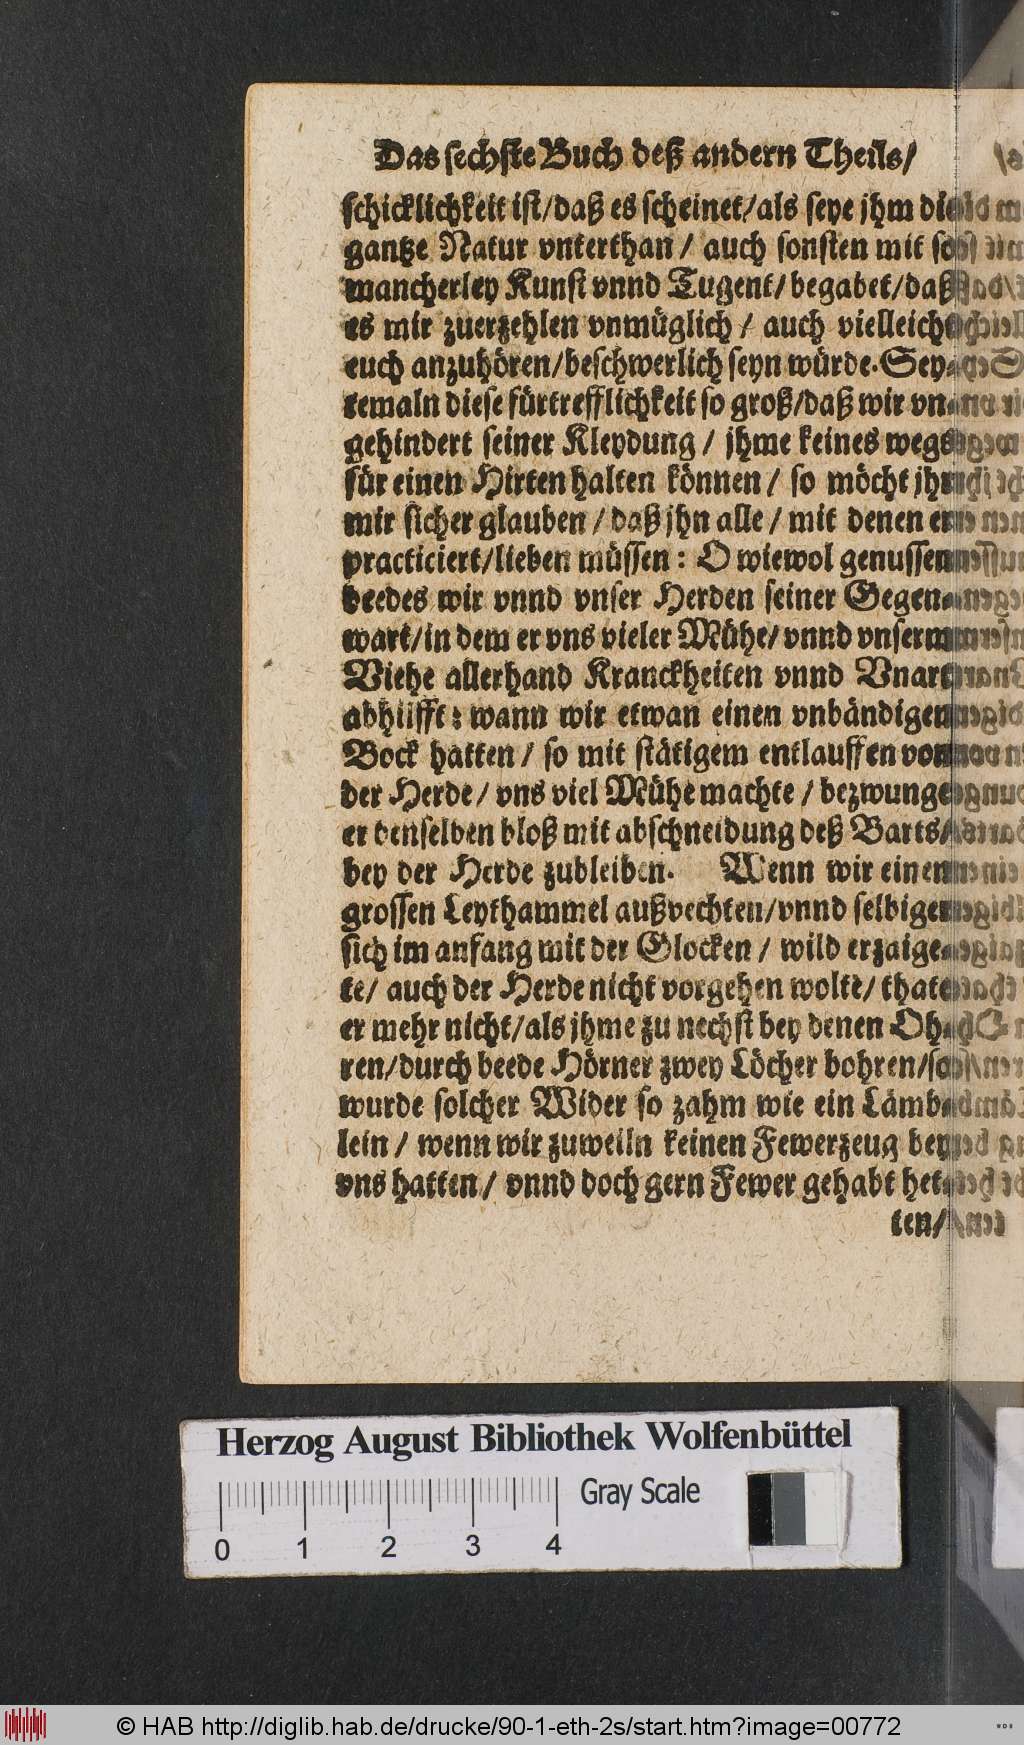 Das sechste Buch deß andern Theils/
schicklichkeit ist/daß es scheinet/als seye jhm die
gantze Natur vnterthan / auch sonsten mit so
mancherley Kunst vnnd Tugent/ begabet/daß
es mir zuerzehlen vnmüglich / auch vielleicht
euch anzuhören/beschwerlich seyn würde. Sey-
temaln diese fürtrefflichkeit so groß/daß wir vn-
gehindert seiner Kleydung / jhme keines wegs
für einen Hirten halten können / so möcht jhr
mir sicher glauben / daß jhn alle / mit denen er
practiciert/lieben müssen: O wiewol genussen
beedes wir vnnd vnser Herden seiner Gegen-
wart/in dem er vns vieler Mühe/ vnnd vnserm
Viehe allerhand Kranckheiten vnnd Vnart
abhilfft: wann wir etwan einen vnbändigen
Bock hatten / so mit stätigem entlauffen von
der Herde / vns viel Mühe machte / bezwunge
er denselben bloß mit abschneidung deß Barts/
bey der Herde zubleiben. Wenn wir einen
grossen Leythammel außvechten/vnnd selbiger
sich im anfang mit der Glocken / wild erzaige-
te/ auch der Herde nicht vorgehen wolte/ thate
er mehr nicht/als jhme zu nechst bey denen Oh-
ren/durch beede Hörner zwey Löcher bohren/so
wurde solcher Wider so zahm wie ein Lämb-
lein / wenn wir zuweiln keinen Fewerzeug bey
vns hatten / vnnd doch gern Fewer gehabt het-
ten/
Herzog August Bibliothek Wolfenbüttel
Gray Scale
0 1 2 3 4
© HAB http://diglib.hab.de/drucke/90-1-eth-2s/start.htm?image=00772